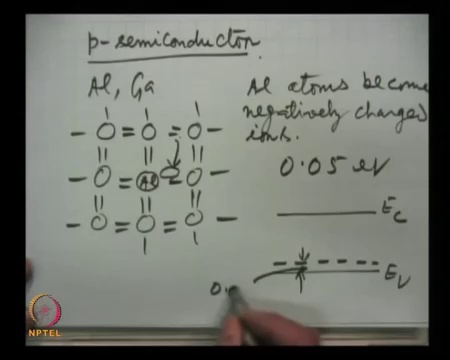 p-semiconductor
Al, Ga
Al atoms become
negatively charged
ions.
0.05 eV
Al
Ec
Ev
0.
NPTEL